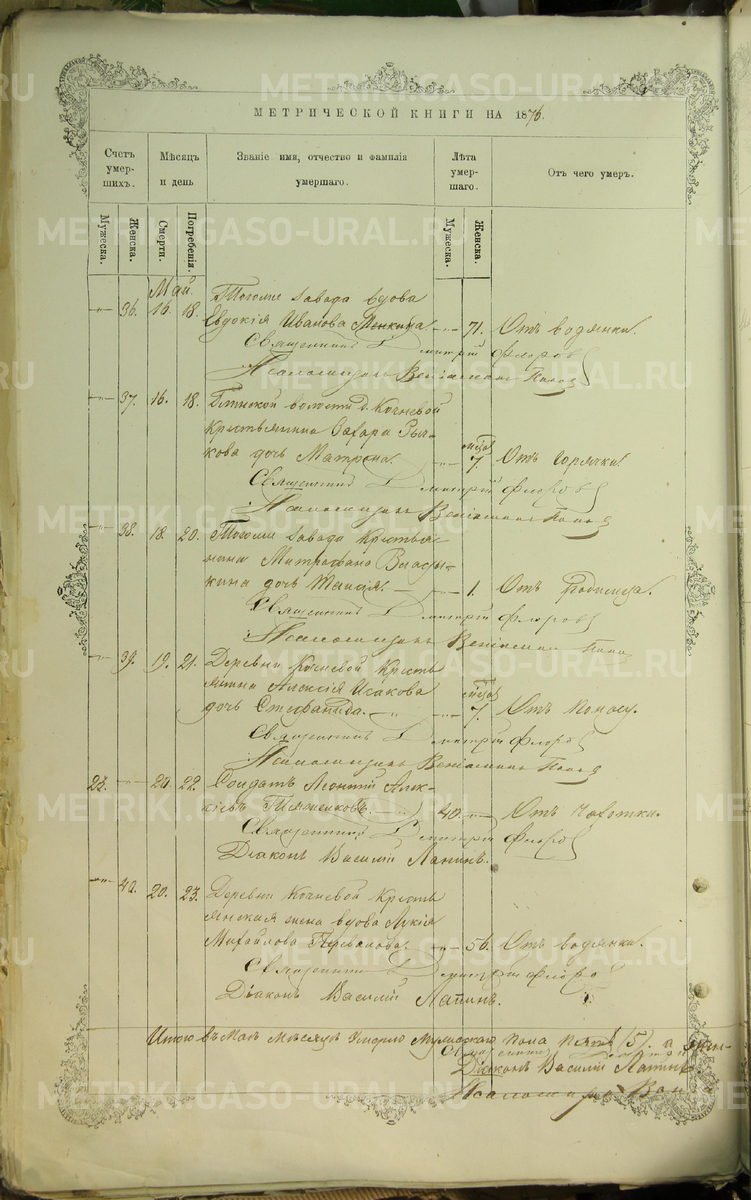 МЕТРИЧЕСКОЙ КНИГИ НА 1876.
Счетъ умер- шихъ.
Мѣсяцъ и день
Званіе имя, отчество и фамилія умершаго.
Лѣта умер- шаго.
Отъ чего умеръ.
Мужеска.
Женска.
Смерти.
Погребенія.
Мужеска.
Женска.
Май.
Тогоже завода вдова
36. 16. 18. Евдокія Иванова 71. Отъ водянки.
Священникъ Димитрій Флоровъ
Псаломщикъ Веніаминъ Попов
37. 16. 18. волости д. Кочневой
Крестьянина
кова дочь Матрона. 7. Отъ горячки.
Священникъ Димитрій Флоровъ
Псаломщикъ Веніаминъ Попов
38. 18. 20. Тогоже завода Крестья-
нина Митрофана
кина дочь Таисія. 1. Отъ родимца.
Священникъ Димитрій Флоровъ
Псаломщикъ Веніаминъ Попов
39. 19. 21. Деревни Кочневой Кресть
янина Алексія Исакова
дочь Стефанида. 7. Отъ поносу.
Священникъ Димитрій Флоровъ
Псаломщикъ Веніаминъ Попов
20. 22. Солдатъ Леонтій Алек-
сіевъ 40. Отъ чахотки.
Священникъ Димитрій Флоровъ
Діаконъ Василій Лапинъ.
20. 23. Деревни Кочневой Кресть
янская жена вдова Лукія
Михайлова 56. Отъ водянки.
Священникъ Димитрій Флоро
Діаконъ Василій Лапинъ.
Итого въ Маѣ Мѣсяцѣ Умерло Мужескаго пола пять (5). а жен-
Діаконъ Василій Лапинъ
Псаломщикъ Вен
METRIKI.GASO-URAL.RU